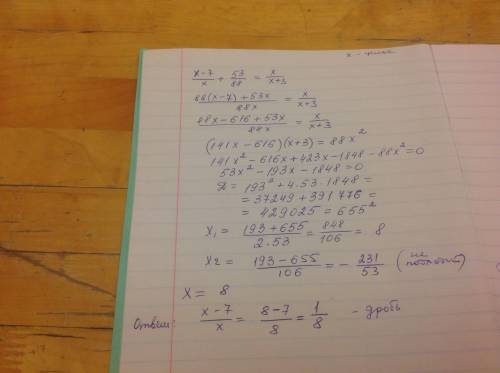 x - числ
x-7/x + 53/88 = x/x+3
88(x-7)+53x/88x = x/x+3
88x-616+53x/88x = x/x+3
(141x - 616)(x+3) = 88x²
141x² - 616x + 423x - 1848 - 88x² = 0
53x² - 193x - 1848 = 0
D = 193² + 4·53·1848 =
= 37249 + 391776 =
= 429025 = 655²
x₁ = 193+655/2·53 = 848/106 = 8
x₂ = 193-655/106 = - 231/53 (не подходит)
x = 8
Ответ: x-7/x = 8-7/8 = 1/8 - дробь